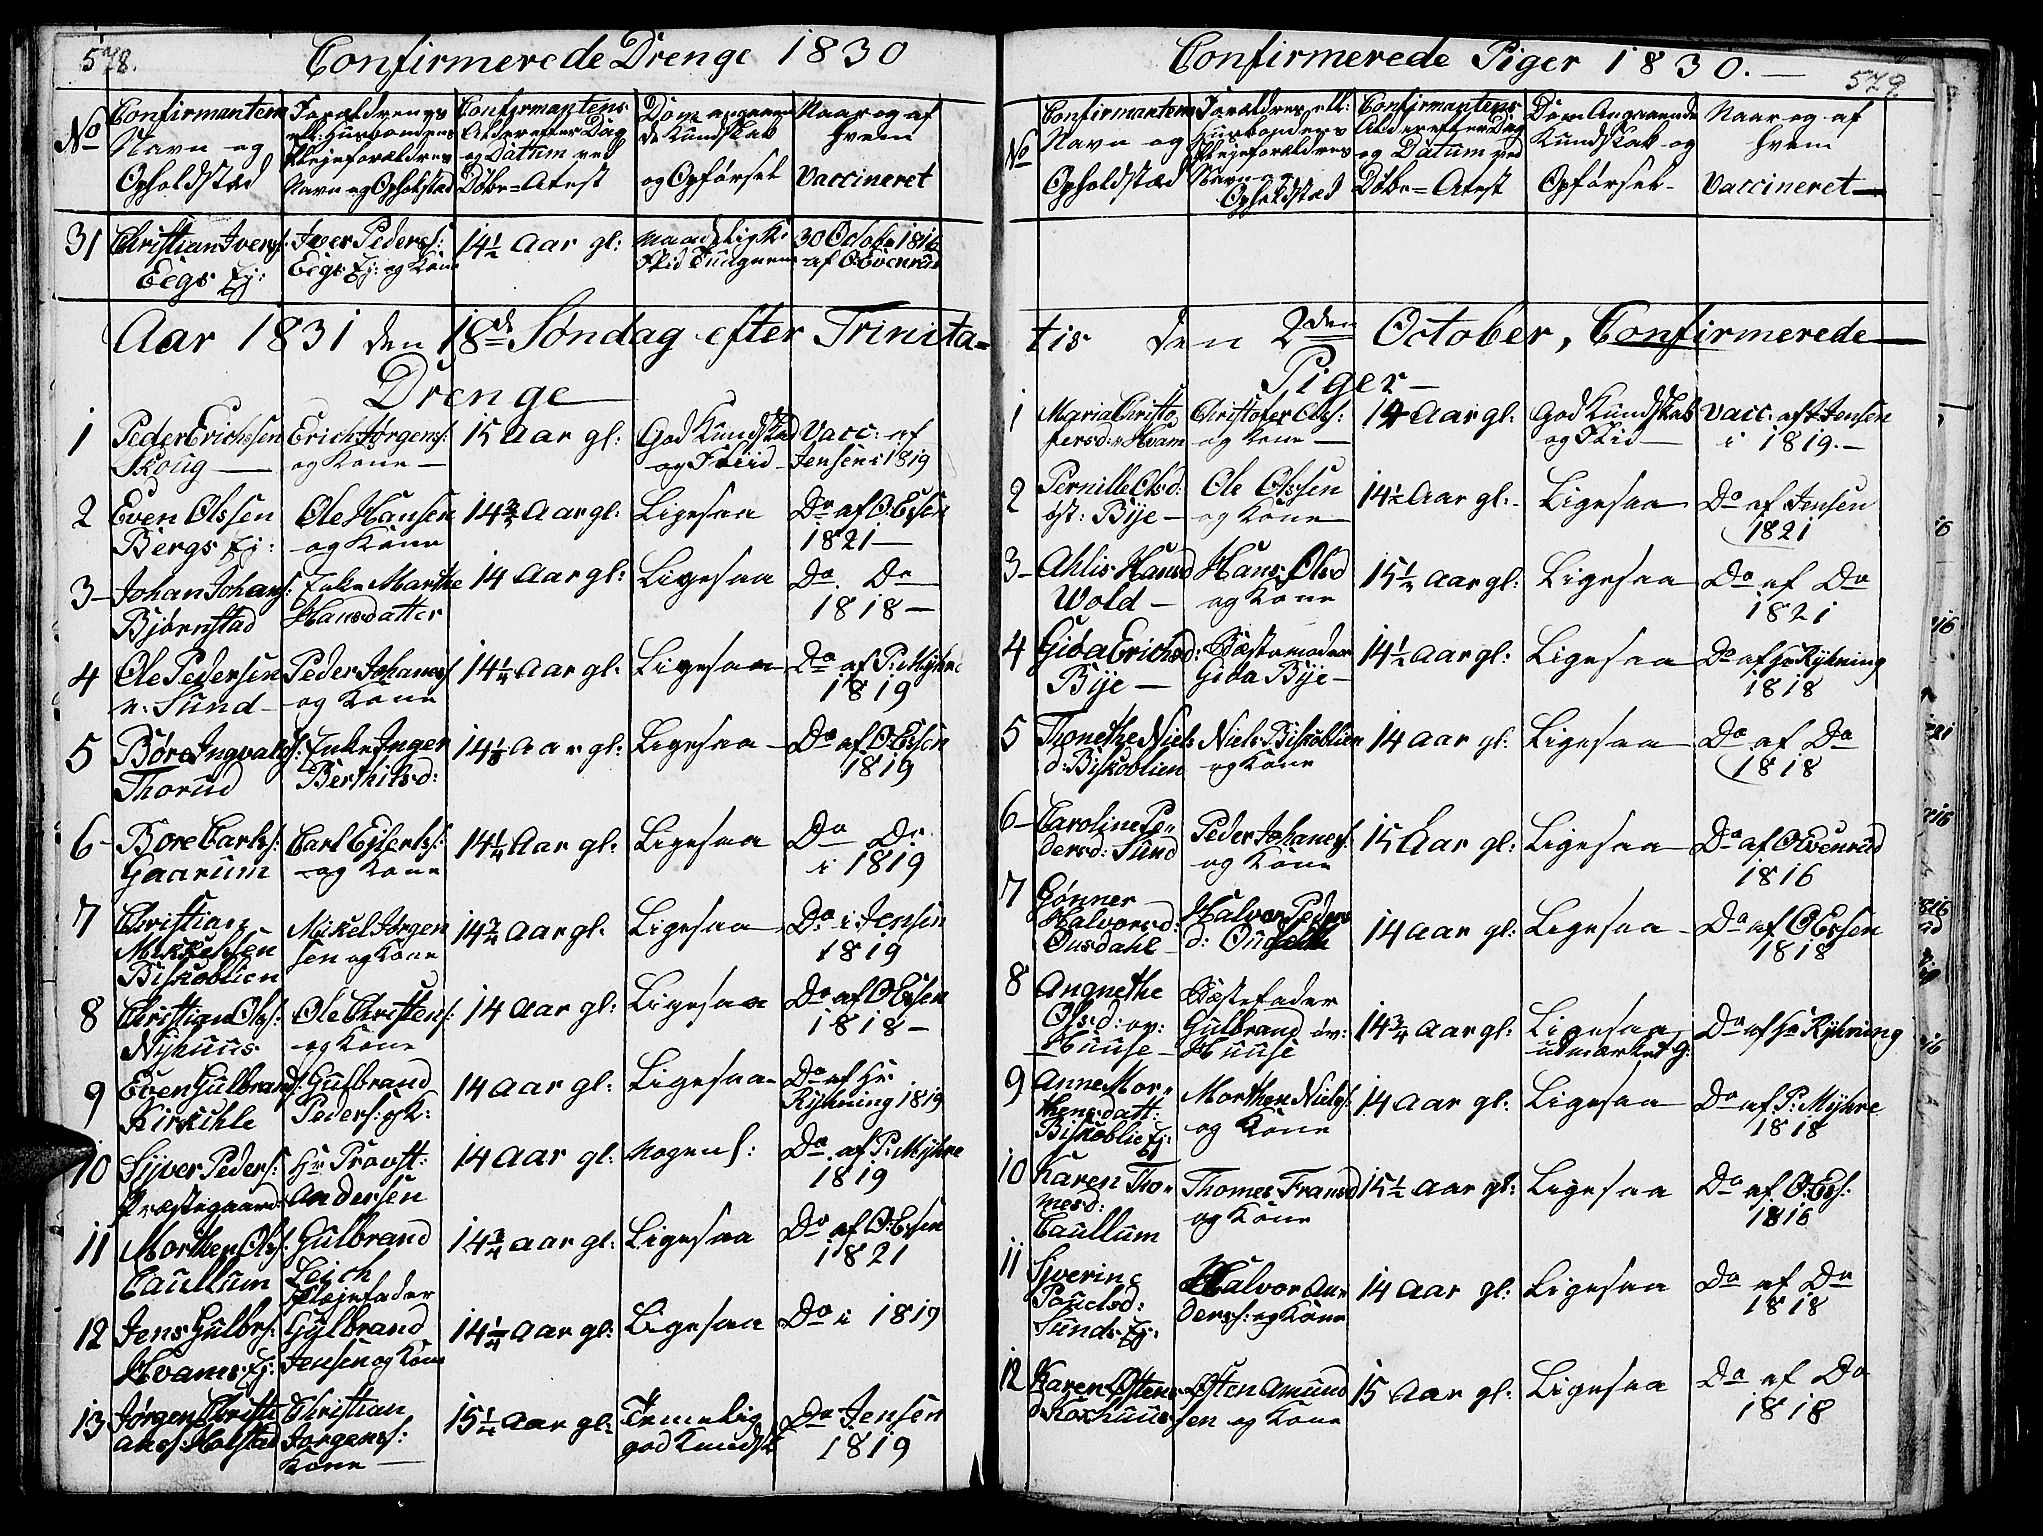 578.
Confirmerede Drenge 1830
No
Confirmantens
Navn og
Opholdstæd
Forældrenes
ell: Husbondens
Plejeforældres
Navn og Opholdstæd
Confirmantens
Alder efter Dag
og Dattum ved
Døbe=Atest
Dom angaaen
de Kundskab
og Opførsel
Naar og af
hvem
Vaccineret
31
Christian Ivers:
Eegs Ej:
Iver Peders:
Eegs Ej: og Kone
14½ Aar gl:
Maadelig K:
Flid
30 Octobr 1816
af O: Evenrud
Aar 1831 den 18de Søndag efter Trinita=
Drenge
1
Peder Erichssen
Skoug
Erich Jørgens:
og Kone
15 Aar gl:
God Kundskab
og Fliid
Vacc: af
Jensen i 1819
2
Even Olssen
Bergs Ej:
Ole Hansen
og Kone
14¾ Aar gl:
Ligesaa
Do af O: Essen
1821
3
Johan Johans:
Bjørnstad
Enke Marthe
Hansdatter
14 Aar gl:
Ligesaa
Do Do
1818
4
Ole Pedersen
n: Sund
Peder Johanes:
og Kone
14¼ Aar gl:
Ligesaa
Do af P: Myhre
1819
5
Børe Ingvalds:
Thorud
Enke Inger
Berthilsd:
14½ Aar gl:
Ligesaa
Do af O: Essen
1819
6
Bore Carls:
Gaarum
Carl Ejlerts:
og Kone
14¼ Aar gl:
Ligesaa
Do Do
i 1819
7
Christian
Mikkelsen
Biskoblien
Mikel Jørgen
sen og Kone
14¾ Aar gl:
Ligesaa
Do i Jensen
1819
8
Christian Ols:
Nyhuus
Ole Christens:
og Kone
14 Aar gl:
Ligesaa
Do af O: Essen
1818
9
Even Gulbrands:
Kirkihle
Gulbrand
Peders: og K:
14 Aar gl:
Ligesaa
Do af Hr
Ryhning 1819
10
Syver Peders:
Præstegaard:
Hr Provst:
Andersen
14 Aar gl:
Nogenl:
Do af P: Myhre
1819
11
Morthen Ols:
Caullum
Gulbrand
Leich
Plejefader
14¾ Aar gl:
Ligesaa
Do af O: Essen
1821
12
Jens Gulbrs:
Hvams Ej:
Gulbrand
Jensen og Kone
14¼ Aar gl:
Ligesaa
Do i 1819
13
Jørgen Christi
ans: Holstad
Christian
Jørgens:
Kone
15¼ Aar gl:
Temelig
god Kundsk
Do Jensen
1819
Confirmerede Piger 1830.
579
No
Confirmantens
Navn og
Opholdstæd
Forældres ell:
Husbondens
Plejeforældres
Navn og
Opholdstæd
Confirmantens
Alder efter Dag
og Datum ved
Døbe=Atest
Dom Angaaende
Kundskab og
Opførsel
Naar og af
hvem
Vaccineret
tis den 2den October, Confirmerede
Piger
1
Maria Christo
fersd: Hvam
Christofer Ols:
og Kone
14 Aar gl:
God Kundskab
og Flid
Vacc: af Jensen
i 1819.
2
Pernille Olsd:
øst: Bye
Ole Olssen
og Kone
14½ Aar gl:
Ligesaa
Do af Jensen
1821
3
Ahlis Hansd
Wold
Hans Olsd
og Kone
15½ Aar gl:
Ligesaa
Do af Do
1821
4
Gida Erichsd:
Bye
Bæstemoder
Gida Bye
14½ Aar gl:
Ligesaa
Do af Hr Ryhning
1818
5
Thonethe Niels
d: Biskoblien
Niels Biskoblien
og Kone
14 Aar gl:
Ligesaa
Do af Do
1818
6
Caroline Pe
dersd: Sund
Peder Johanes:
og Kone
15 Aar gl:
Ligesaa
Do af O: Evenrud
1816
7
Gønner
Halvorsd:
Ousdahl
Halvor Peders
14 Aar gl:
Ligesaa
Do af O: Essen
1818
8
Angnethe
Olsd: øv:
Huuse
Bæstefader
Gulbrand øv:
Huuse
14¾ Aar gl:
Ligesaa
udmærket G:
Do af Hr Ryhning
9
Anne Mor
thensdatt:
Biskoblie Ej:
Morthen Niels:
og Kone
14 Aar gl:
Ligesaa
Do af P: Myhre
1818
10
Karen Tho
mesd:
Caullum
Thomes Fransd
og Kone
15½ Aar gl:
Ligesaa
Do af O: Ess:
1816
11
Syverine
Poulsd:
Sunds Ej:
Halvor An
ders: og Kone
14 Aar gl:
Ligesaa
Do af Do
1818
12
Karen Østens
d: Korhuus
Østen Amund
sen og Kone
15 Aar gl:
Ligesaa
Do af Do
1818